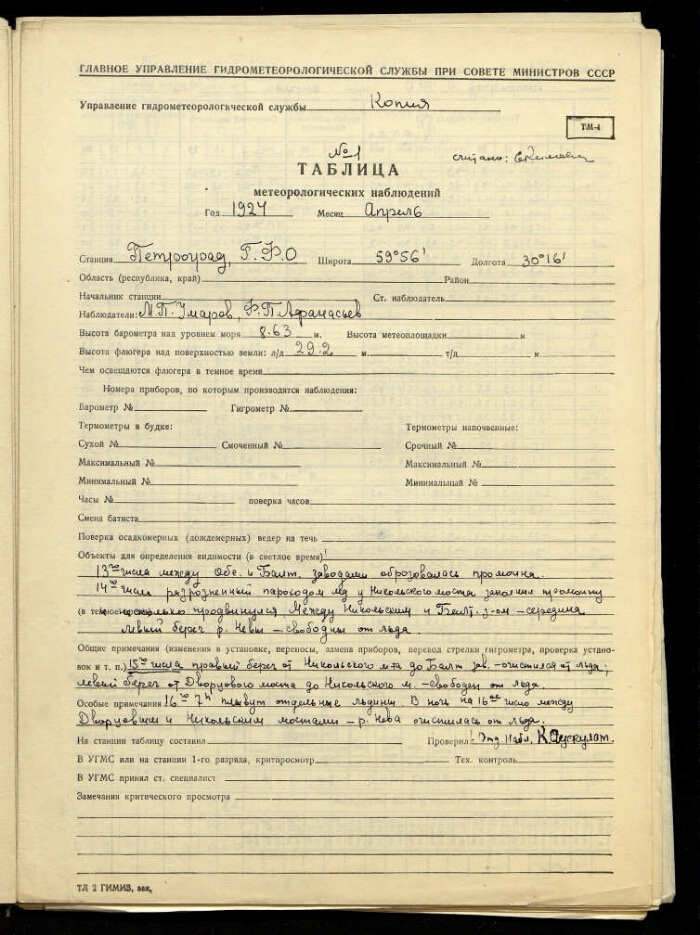 ГЛАВНОЕ УПРАВЛЕНИЕ ГИДРОМЕТЕОРОЛОГИЧЕСКОЙ СЛУЖБЫ ПРИ СОВЕТЕ МИНИСТРОВ СССР
Управление гидрометеорологической службы Копия
ТМ-1
№1
считано:
ТАБЛИЦА
метеорологических наблюдений
Год 1924 Месяц Апрель
Станция Петроград, Г.Ф.О Широта 59°56' Долгота 30°16'
Область (республика, край) Район
Начальник станции Ст. наблюдатель
Наблюдатели: М.П. Умаров, Ф.П. Афанасьев
Высота барометра над уровнем моря 8.63 м. Высота метеоплощадки м
Высота флюгера над поверхностью земли: л/д 29.2 м. т/д м
Чем освещаются флюгера в темное время
Номера приборов, по которым производятся наблюдения:
Барометр № Гигрометр №
Термометры в будке: Термометры напочвенные:
Сухой № Смоченный № Срочный №
Максимальный № Максимальный №
Минимальный № Минимальный №
Часы № поверка часов
Смена батиста
Поверка осадкомерных (дождемерных) ведер на течь
Объекты для определения видимости (в светлое время)
13го числа между Обс. и Балт. заводами образовалась промоина.
14го числа пароходом у Никольского моста промоину
(в темное несколько продвинулся Между Никольским и Балт. з-ом - середина
левый берег р. Невы - свободны от льда.
Общие примечания (изменения в установке, переносы, замена приборов, перевод стрелки гигрометра, проверка установ-
ки и т. п.) 15го числа правый берег от Никольского м-та до Балт. зав. - очистился от льда;
левый берег от Дворцового моста до Никольского м. - свободен от льда.
Особые примечания 16го 7ч плывут отдельные льдины. В ночь на 16ое число между
Дворцовым и Никольским мостами - р. Нева очистилась от льда.
На станции таблицу составил Проверил: Отд. Набл.
В УГМС или на станции 1-го разряда, критпросмотр Тех. контроль
В УГМС принял ст. специалист
Замечания критического просмотра
ТЛ 2 ГИМИЗ, зак.